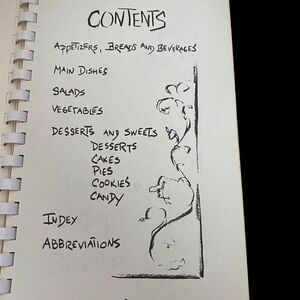 CONTENTS
APPETIZERS, BREADS AND BEVERAGES
MAIN DISHES
SALADS
VEGETABLES
DESSERTS AND SWEETS
DESSERTS
CAKES
PIES
COOKIES
CANDY
INDEX
ABBREVIATIONS